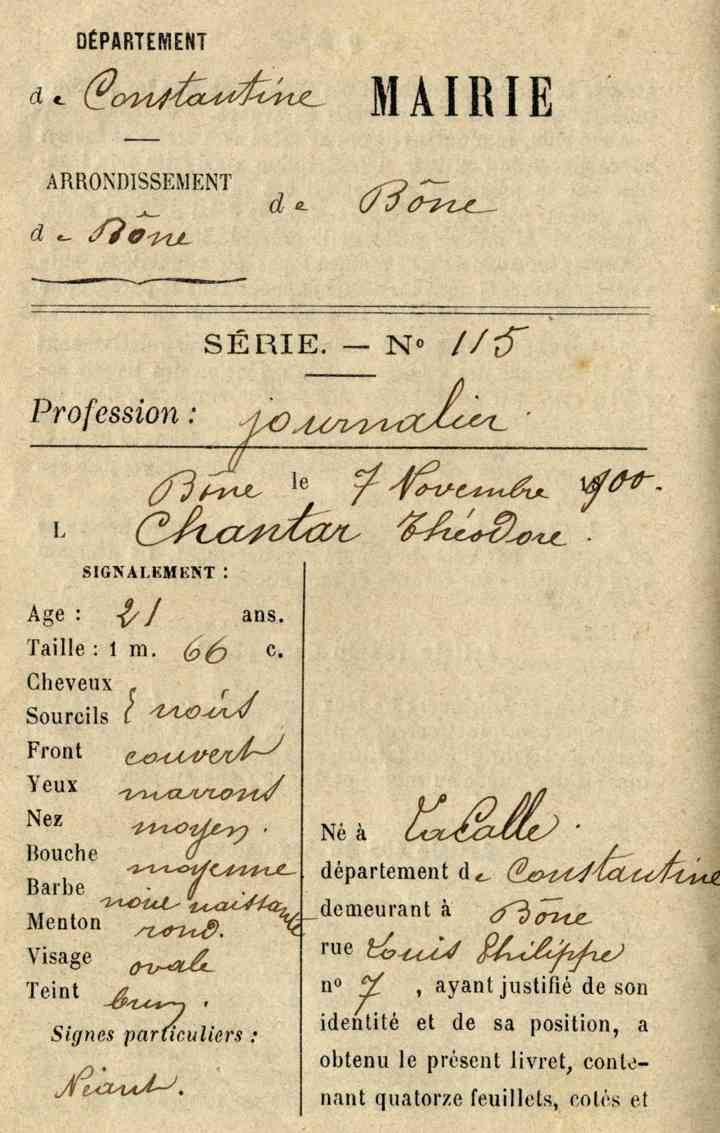 DÉPARTEMENT
de Constantine
MAIRIE
ARRONDISSEMENT
de Bône
de Bône
SÉRIE. — Nº 115
Profession : journalier
Bône le 7 Novembre 1900.
L Chantar Théodore.
SIGNALEMENT :
Age : 21 ans.
Taille : 1 m. 66 c.
Cheveux
Sourcils } noirs
Front couvert
Yeux marrons
Nez moyen.
Bouche moyenne
Barbe noire naissante
Menton rond.
Visage ovale
Teint brun.
Signes particuliers :
Néant.
Né à La Calle.
département de Constantine
demeurant à Bône
rue Louis Philippe
nº 7, ayant justifié de son
identité et de sa position, a
obtenu le présent livret, conte-
nant quatorze feuillets, cotés et